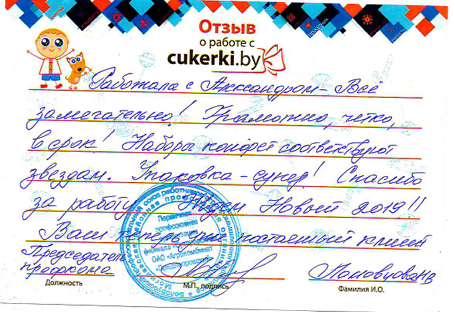 Отзыв
о работе с
cukerki.by
Работала с Александром - Всё
замечательно! Грамотно, четко,
в срок! Наборы конфет соответствуют
звездам. Упаковка - супер! Спасибо
за работу! Ждем Новый 2019!!
Ваш теперь уже постоянный клиент
Председатель
профкома
Должность
М.П., подпись
Фамилия И.О.